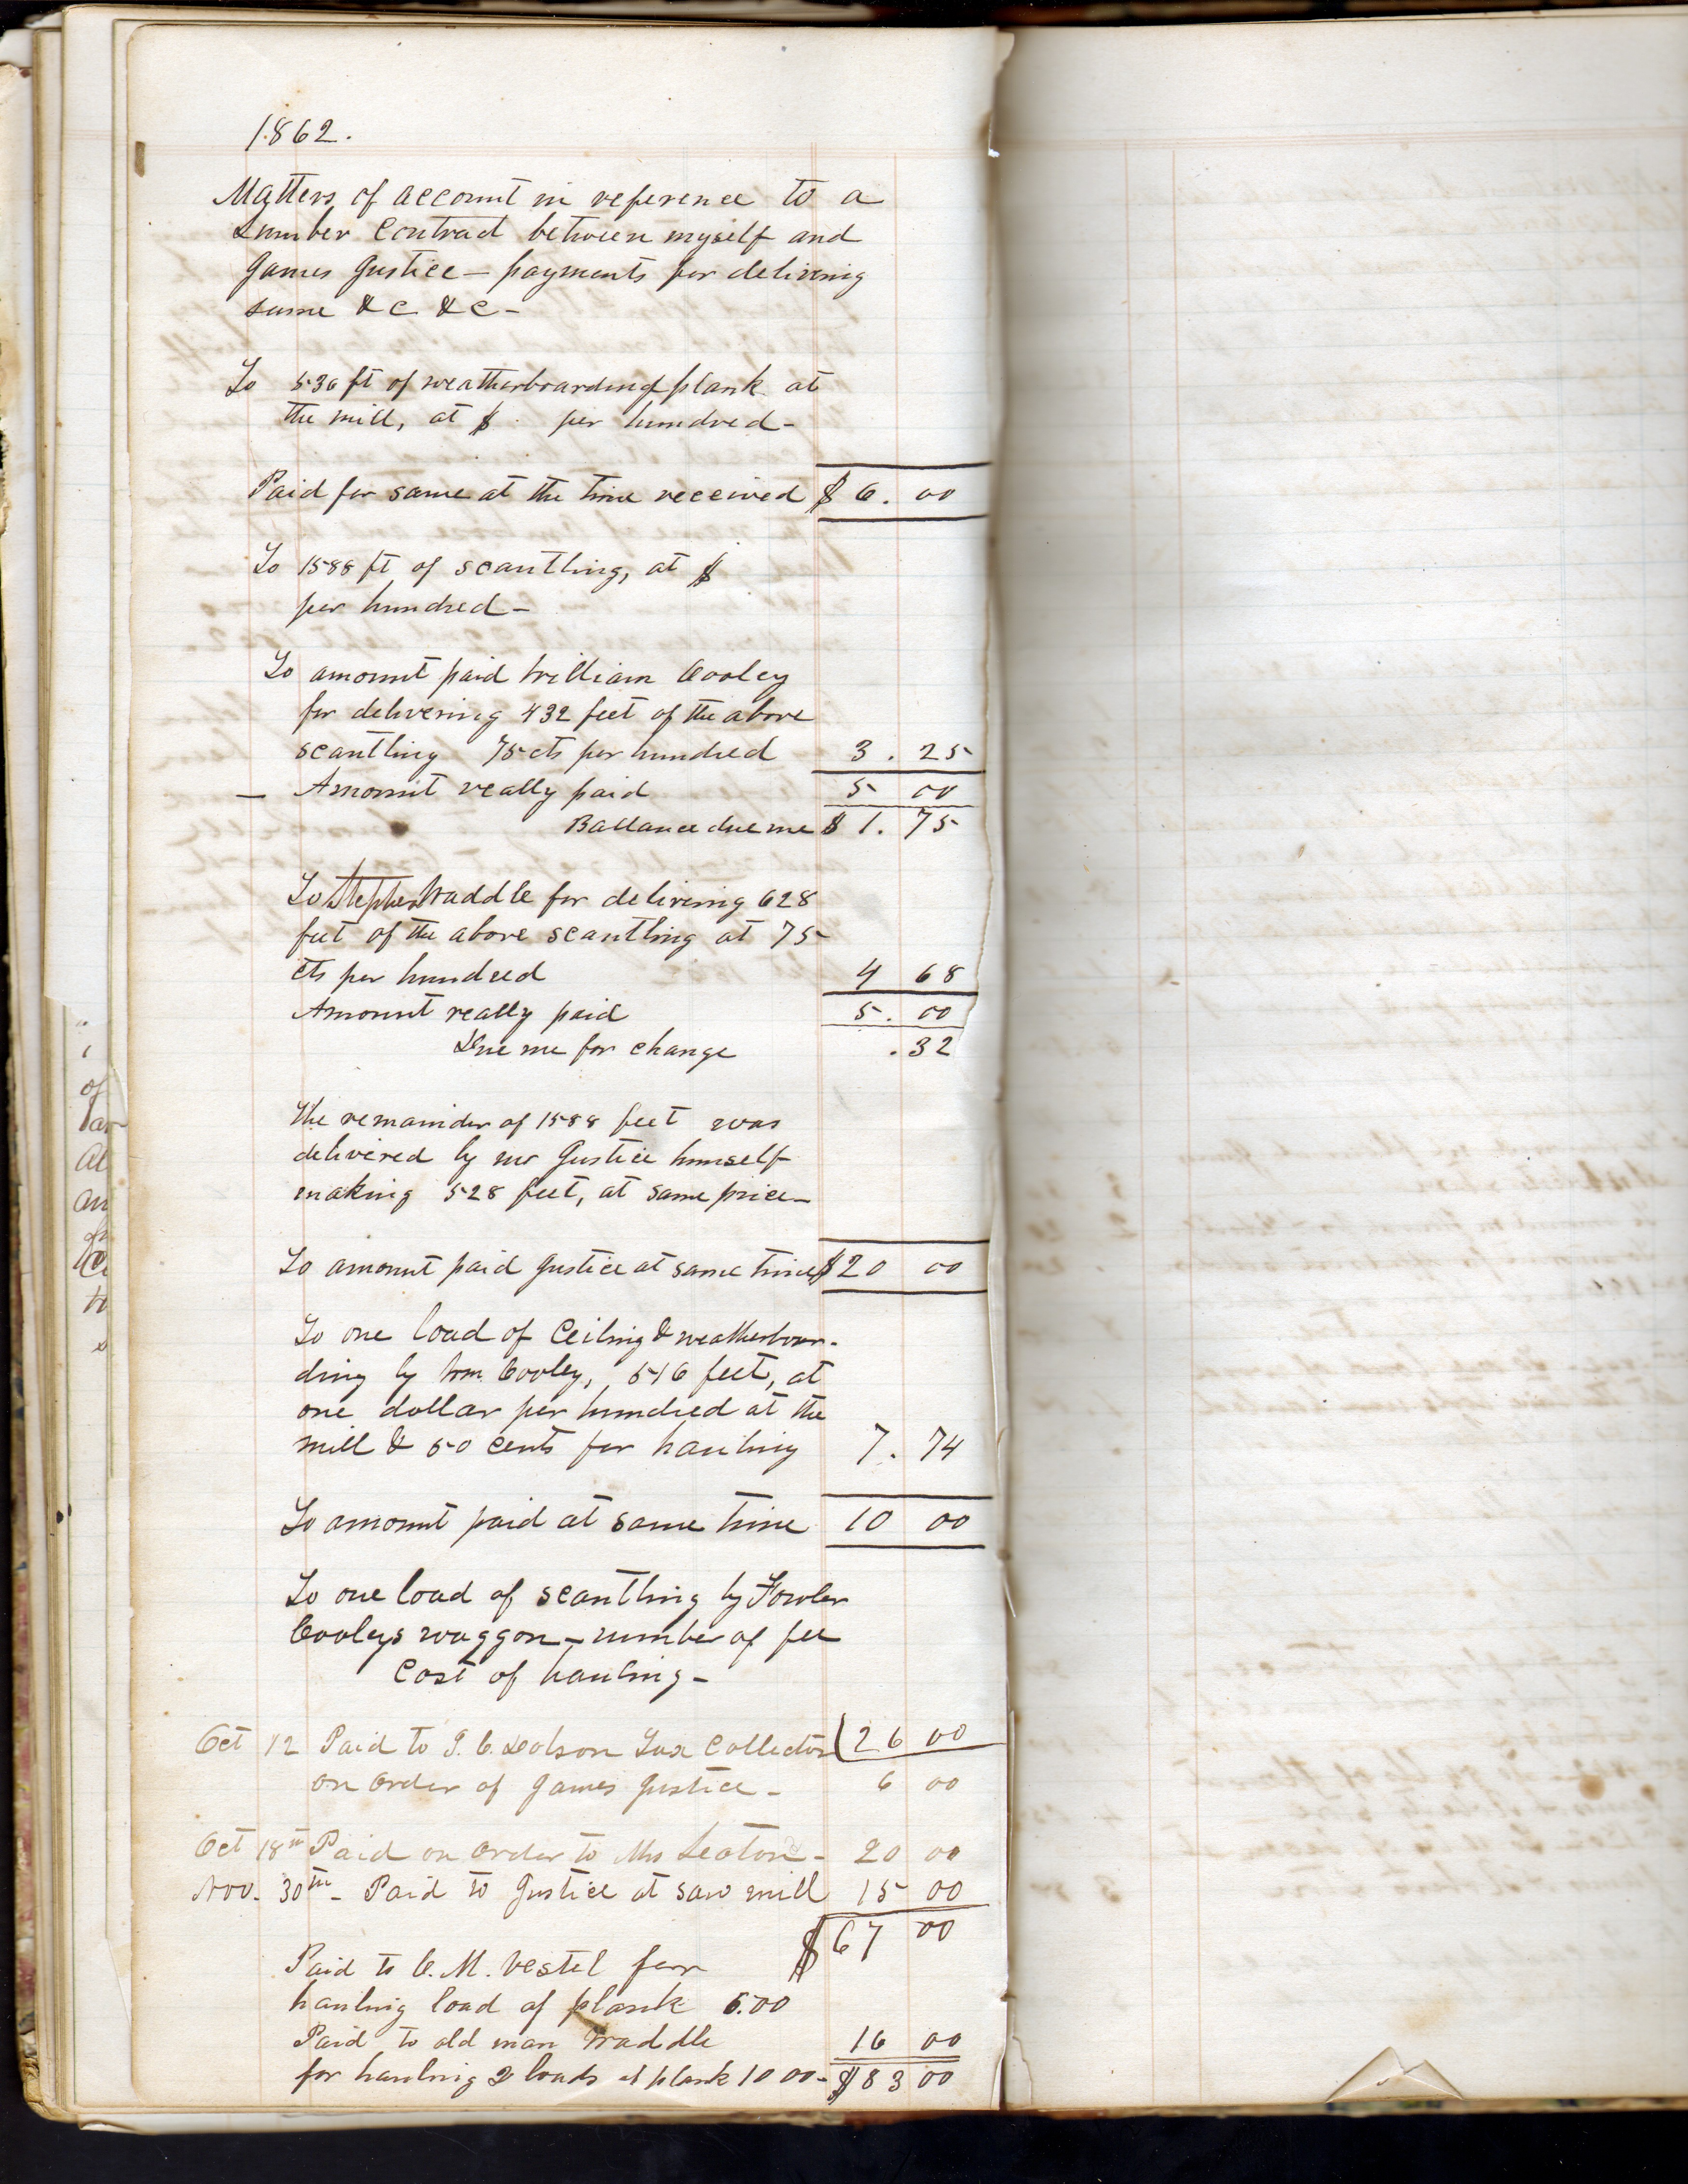 1862.
Matters of account in reference to a
Lumber Contract between myself and
James Justice — payments for delivering
same &c &c -
To 536 ft of weatherboarding plank at
the mill, at $ per hundred -
Paid for same at the time received $ 6. 00
To 1588 ft of scantling, at $
per hundred -
To amount paid William Cooley
for delivering 432 feet of the above
scantling 75 cts per hundred 3. 25
— Amount really paid 5 00
Ballance due me $ 1. 75
To Stephen Waddle for delivering 628
feet of the above scantling at 75
cts per hundred 4 68
Amount really paid 5. 00
Due me for change .32
The remainder of 1588 feet was
delivered by Mr Justice himself
making 528 feet, at same price -
To amount paid Justice at same time $20 00
To one load of Ceiling & weatherboar-
ding by Wm. Cooley, 516 feet, at
one dollar per hundred at the
mill & 50 cents for hauling 7. 74
To amount paid at same time 10 00
To one load of scantling by Fowler
Cooleys waggon - number of fee
Cost of hauling -
26 00
Oct 12 Paid to Dobson Tax Collector
on order of James Justice - 6 00
Oct 18th Paid on order to Mrs Seaton - 20 00
Nov. 30th - Paid to Justice at saw mill 15 00
$ 67 00
Paid to C. M. Vestel for
hauling load of plank 6.00
Paid to old man Waddle 16 00
for hauling 2 loads of plank 10 00 - $ 83 00
of